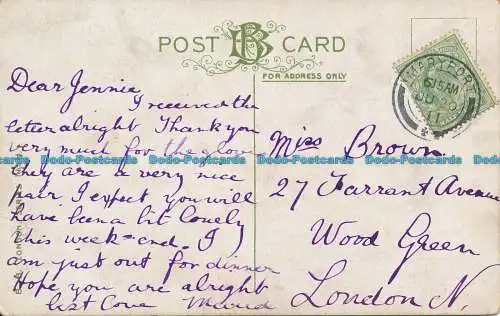 POST CARD
FOR ADDRESS ONLY
Dear Jennie,
I received the
letter alright Thank you
very much for the glove
they are a very nice
pair I expect you will
have been a bit Lonely
this week-end. I
am just out for dinner
Hope you are alright
best Love Maud
Miss Brown
27 Farrant Avenue
Wood Green
London N.
MARYPORT
615 AM
11
Dodo-Postcards Dodo-Postcards Dodo-Postcards Dodo-Postcards